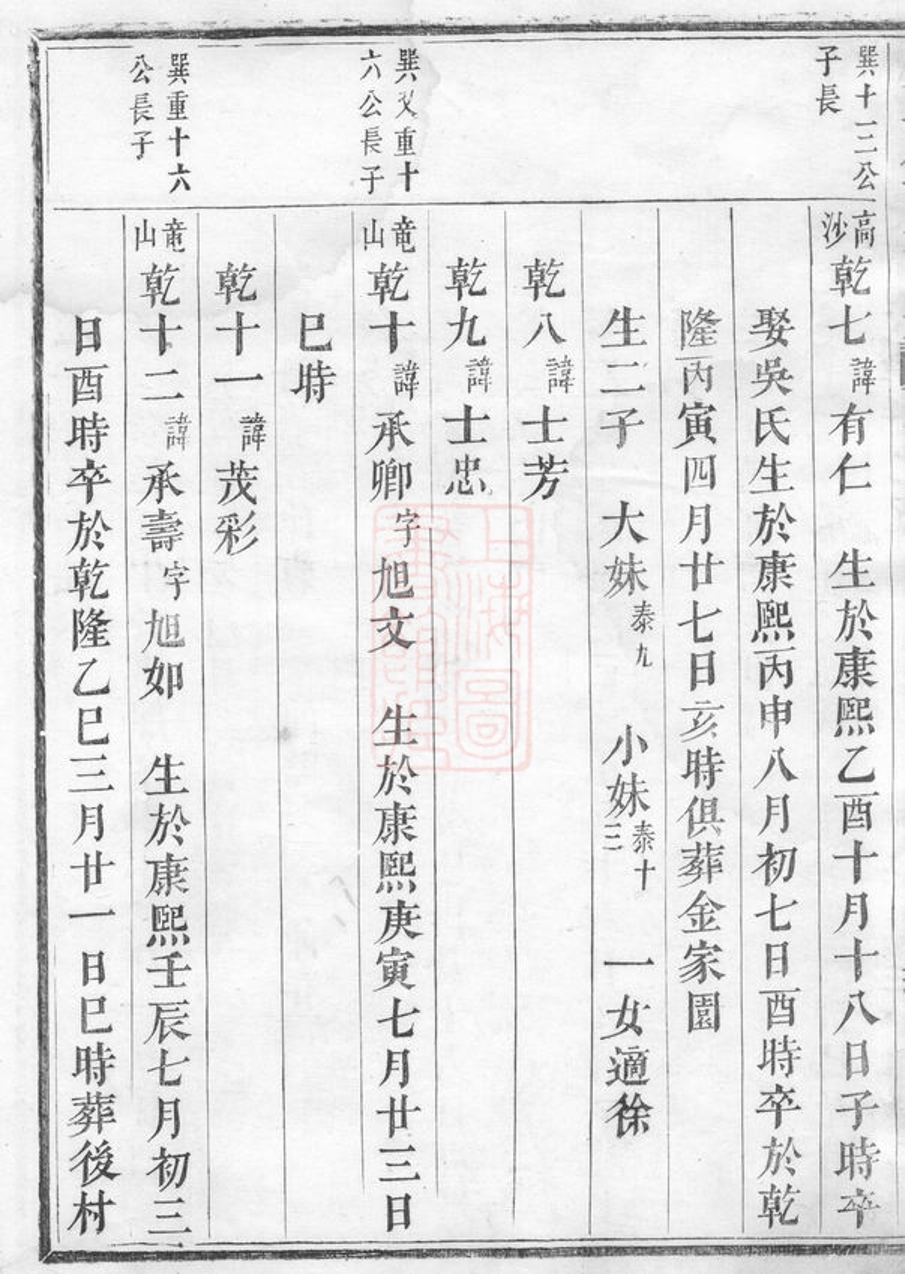 巽十二公
子長
高沙乾七諱有仁 生於康熙乙酉十月十八日子時卒
娶吳氏生於康熙丙申八月初七日酉時卒於乾
隆丙寅四月廿七日亥時俱葬金家園
生二子 大妹泰九 小妹泰十三 一女適徐
乾八諱士芳
乾九諱士忠
巽又重十
六公長子
竜山乾十諱承卿字旭文 生於康熙庚寅七月廿三日
巳時
乾十一諱茂彩
巽重十六
公長子
竜山乾十二諱承壽字旭如 生於康熙壬辰七月初三
日酉時卒於乾隆乙巳三月廿一日巳時葬後村